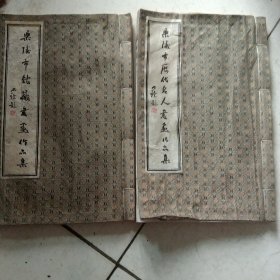 乐陵市馆藏书画作品集
乐陵市历代名人书画作品集